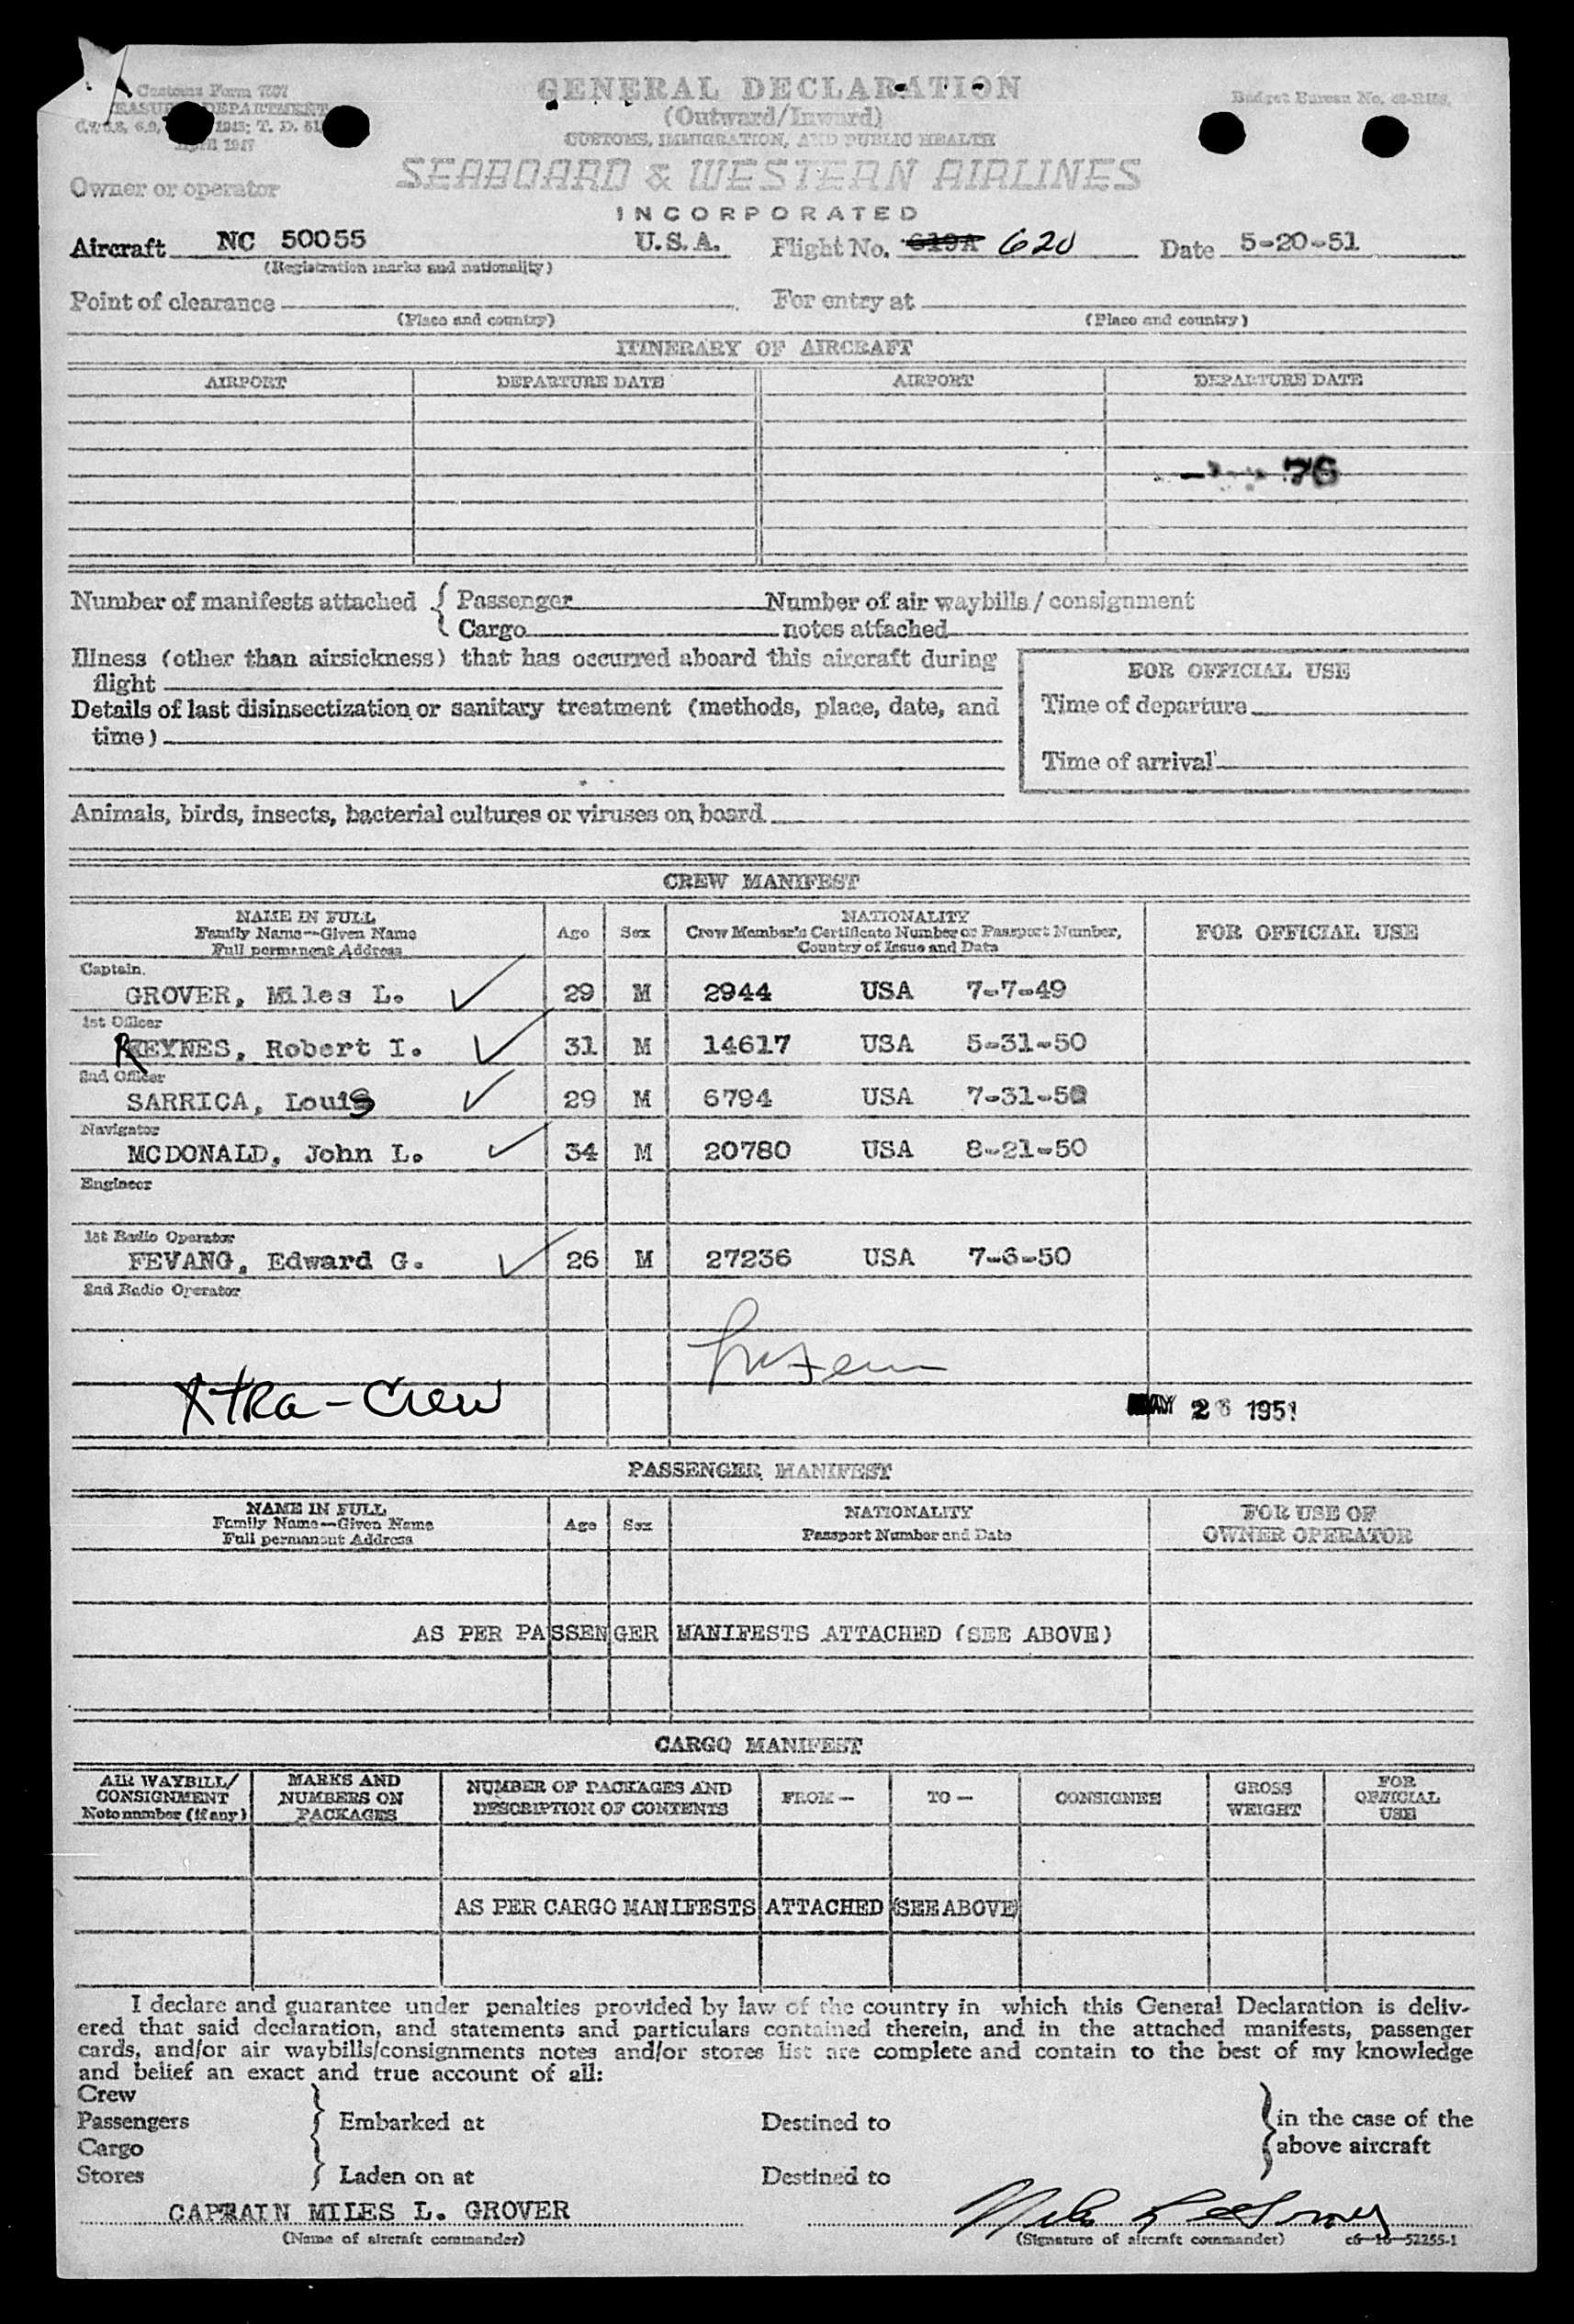 Customs Form 7507
TREASURY DEPARTMENT
April 1947
GENERAL DECLARATION
(Outward/Inward)
CUSTOMS, IMMIGRATION, AND PUBLIC HEALTH
Budget Bureau No.
SEABOARD & WESTERN AIRLINES
INCORPORATED
Owner or operator
Aircraft NC 50055 U.S.A. Flight No. 619A 620 Date 5-20-51
(Registration marks and nationality)
Point of clearance For entry at
(Place and country) (Place and country)
ITINERARY OF AIRCRAFT
AIRPORT DEPARTURE DATE AIRPORT DEPARTURE DATE
76
Number of manifests attached { Passenger Number of air waybills / consignment
Cargo notes attached
Illness (other than airsickness) that has occurred aboard this aircraft during
flight
FOR OFFICIAL USE
Details of last disinsectization or sanitary treatment (methods, place, date, and
time)
Time of departure
Time of arrival
Animals, birds, insects, bacterial cultures or viruses on board
CREW MANIFEST
NAME IN FULL
Family Name--Given Name
Full permanent Address
Age Sex
NATIONALITY
Crew Member's Certificate Number or Passport Number,
Country of Issue and Date
FOR OFFICIAL USE
Captain
GROVER, Miles L. ✓ 29 M 2944 USA 7-7-49
1st Officer
REYNES, Robert I. ✓ 31 M 14617 USA 5-31-50
2nd Officer
SARRICA, Louis ✓ 29 M 6794 USA 7-31-50
Navigator
MCDONALD, John L. ✓ 34 M 20780 USA 8-21-50
Engineer
1st Radio Operator
FEVANG, Edward G. ✓ 26 M 27236 USA 7-6-50
2nd Radio Operator
Xtra-Crew
MAY 26 1951
PASSENGER MANIFEST
NAME IN FULL
Family Name--Given Name
Full permanent Address
Age Sex
NATIONALITY
Passport Number and Date
FOR USE OF
OWNER OPERATOR
AS PER PASSENGER MANIFESTS ATTACHED (SEE ABOVE)
CARGO MANIFEST
AIR WAYBILL/
CONSIGNMENT
Note number (if any)
MARKS AND
NUMBERS ON
PACKAGES
NUMBER OF PACKAGES AND
DESCRIPTION OF CONTENTS
FROM —
TO —
CONSIGNEE
GROSS
WEIGHT
FOR
OFFICIAL
USE
AS PER CARGO MANIFESTS ATTACHED (SEE ABOVE)
I declare and guarantee under penalties provided by law of the country in which this General Declaration is deliv-
ered that said declaration, and statements and particulars contained therein, and in the attached manifests, passenger
cards, and/or air waybills/consignments notes and/or stores list are complete and contain to the best of my knowledge
and belief an exact and true account of all:
Crew
Passengers } Embarked at Destined to } in the case of the
Cargo above aircraft
Stores Laden on at Destined to
CAPTAIN MILES L. GROVER
(Name of aircraft commander) (Signature of aircraft commander) c6—16—52255-1